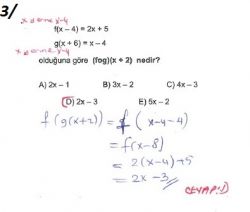 3/
x yerine x-4
f(x − 4) = 2x + 5
g(x + 6) = x − 4
x yerine x-4
olduğuna göre (fog)(x + 2) nedir?
A) 2x − 1 B) 3x − 2 C) 4x − 3
D) 2x − 3 E) 5x − 2
f(g(x+2)) = f(x-4-4)
= f(x-8)
= 2(x-4)+5
= 2x-3
CEVAP: D